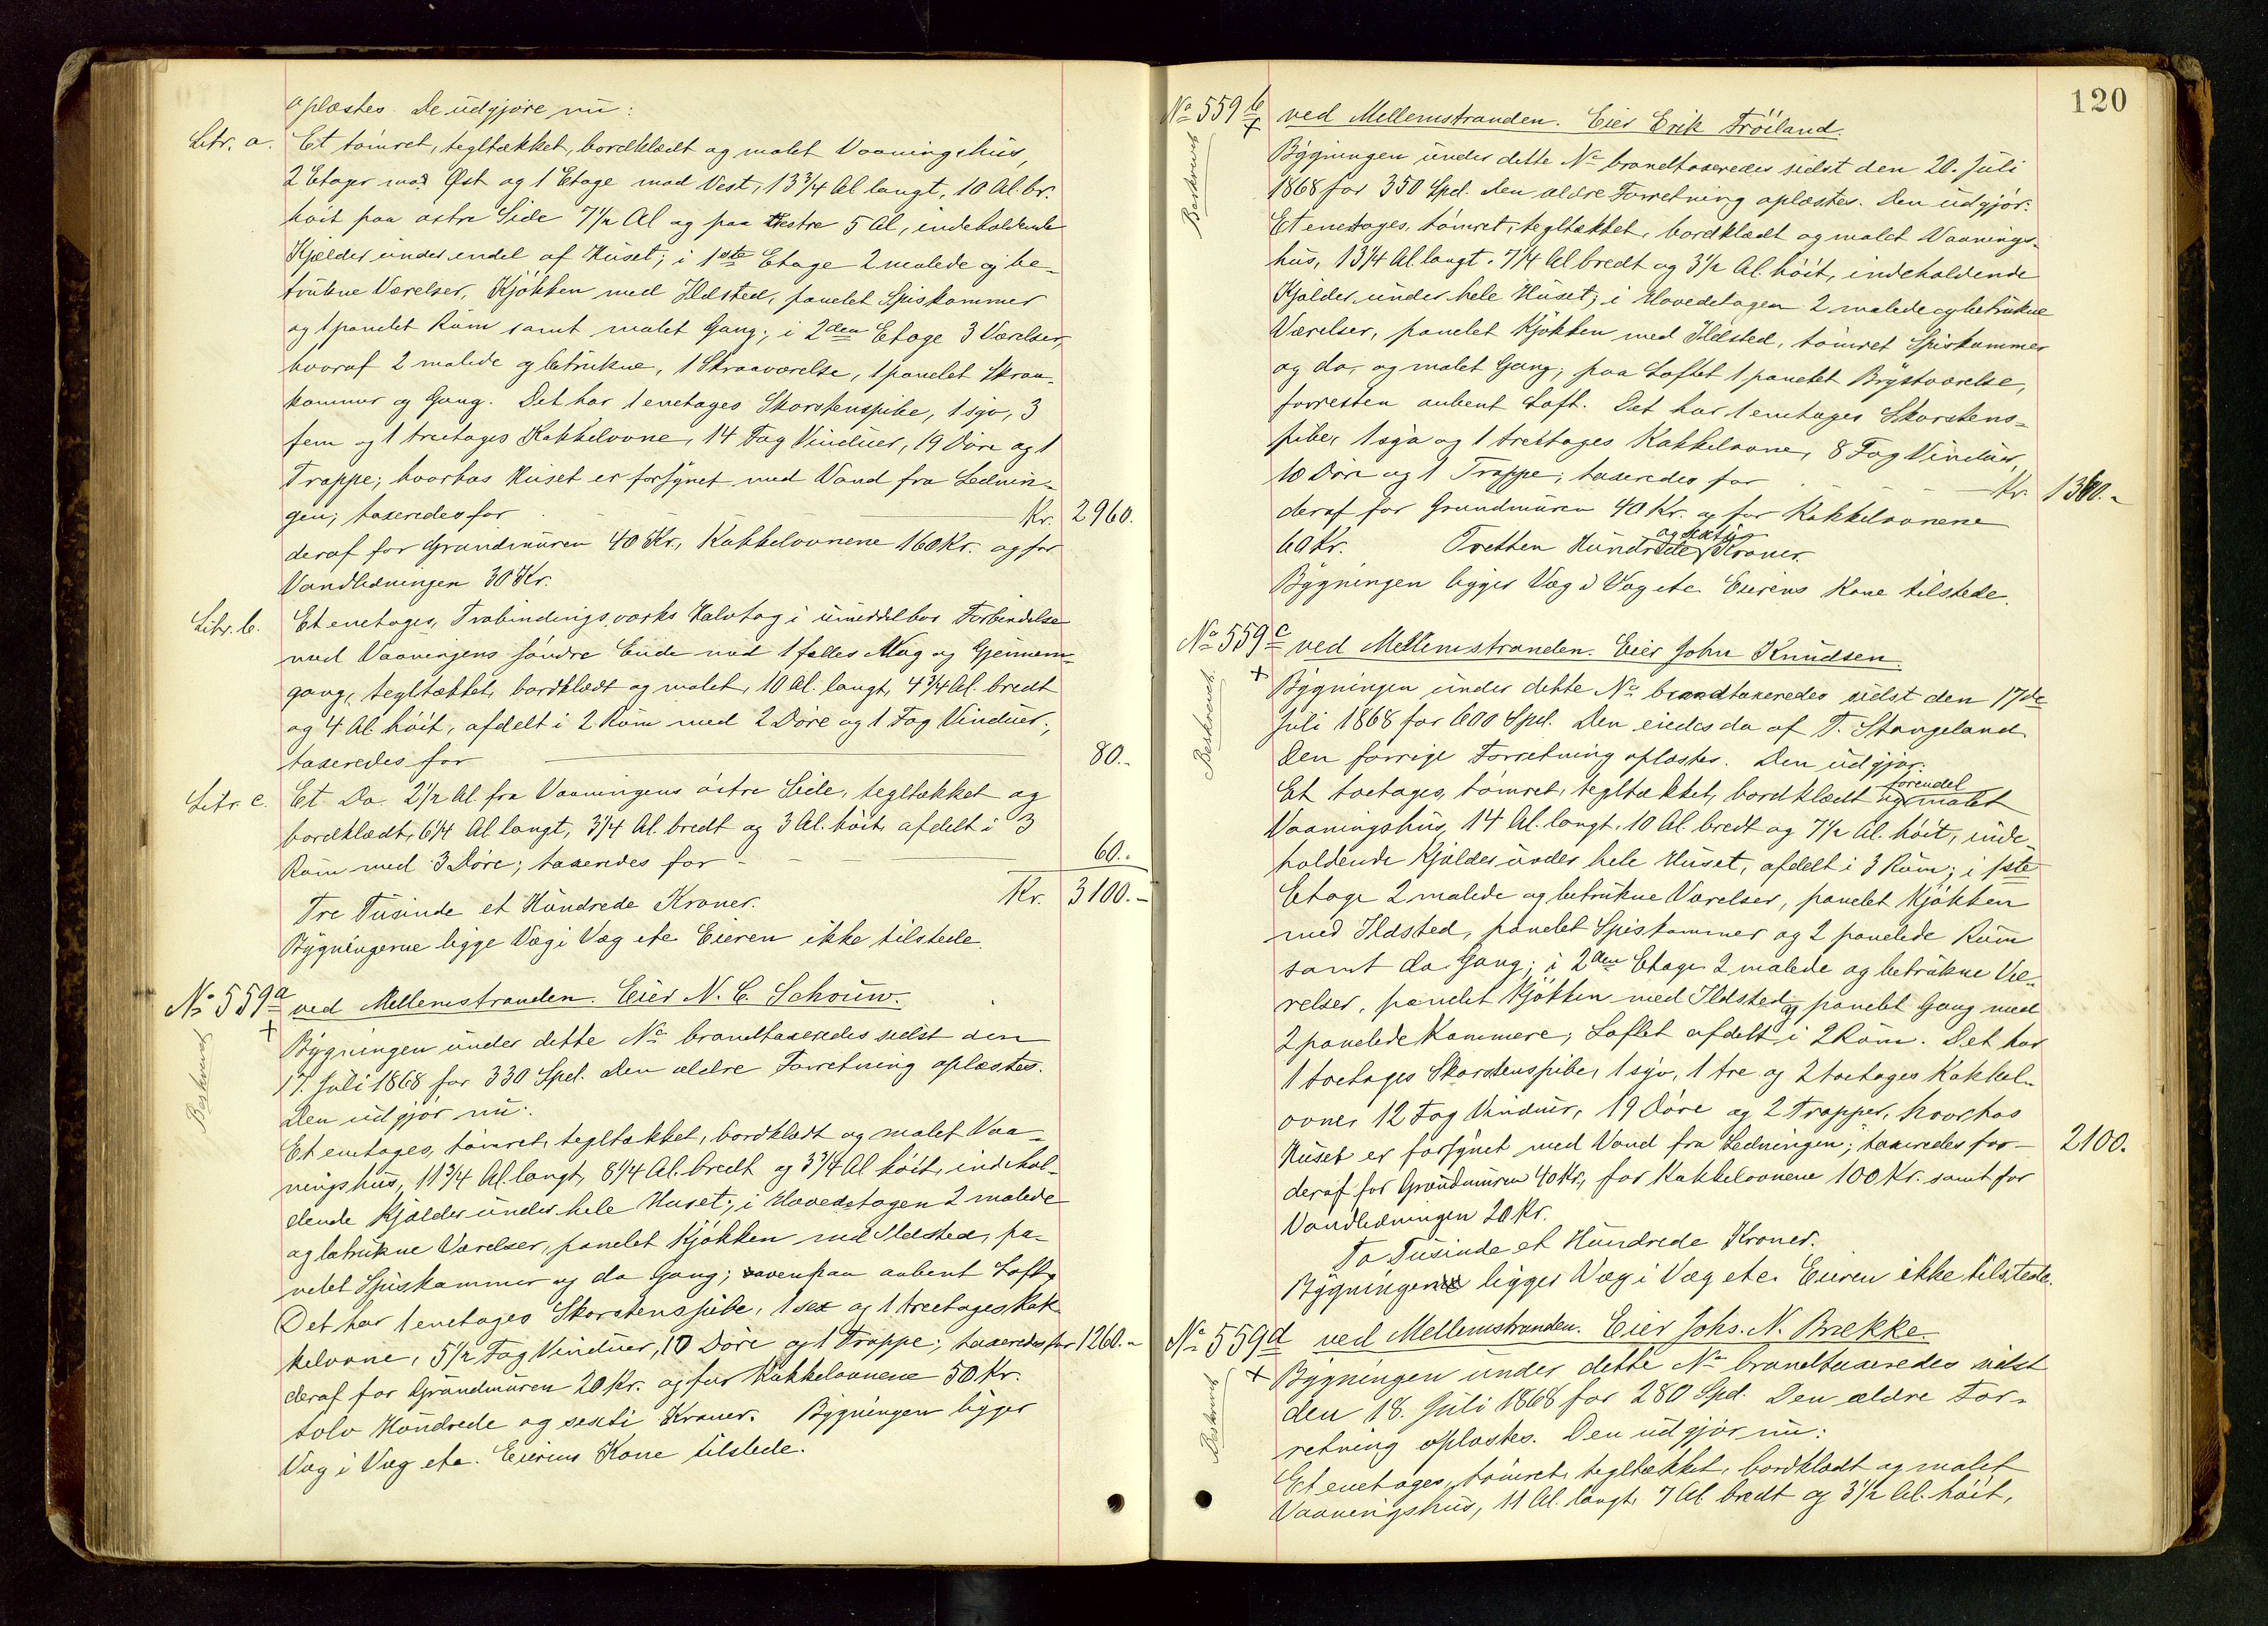 oplæstes. De udgjøre nu:
Litr. a. Et tømret, tegltækket, bordklædt og malet Vaaningshus,
2 Etager mod Øst og 1 Etage mod Vest, 13 3/4 Al langt, 10 Al. br.
høit paa østre Side 7 1/2 Al og paa vestre 5 Al, indeholdende
Kjælder under endel af Huset; i 1ste Etage 2 malede og be-
trukne Værelser, Kjøkken med Ildsted, panelet Spiskammer
og 1 panelet Rum samt malet Gang; i 2den Etage 3 Værelser,
hvoraf 2 malede og betrukne, 1 Skraaværelse, 1 panelet Skraa-
kammer og Gang. Det har 1 enetages Skorstenspibe, 1 syv, 3
fem og 1 treetages Kakkelovne, 14 Fag Vinduer, 19 Døre og 1
Trappe; hvorhos Huset er forsynet med Vand fra Lednin-
gen; taxeredes for Kr. 2960.
deraf for Grundmuren 40 Kr., Kakkelovnene 160 Kr. og for
Vandledningen 30 Kr.
Litr. b. Et enetages, Træbindingsværks Halvtag i umiddelbar Forbindelse
med Vaaningens søndre Ende med 1 fælles Væg og Gjennem-
gang, tegltækket, bordklædt og malet, 10 Al. langt, 4 3/4 Al. bredt
og 4 Al. høit, afdelt i 2 Rum med 2 Døre og 1 Fag Vinduer;
taxeredes for 80.-
Litr. c. Et Do. 2 1/2 Al. fra Vaaningens østre Side, tegltækket og
bordklædt, 6 1/4 Al langt, 3 1/4 Al. bredt og 3 Al. høit, afdelt i 3
Rum med 3 Døre; taxeredes for 60.-
Tre Tusinde et Hundrede Kroner. Kr. 3100.-
Bygningerne ligge Væg i Væg etc. Eieren ikke tilstede.
No 559a ved Mellemstranden. Eier N. C. Schouw.
+
Beskrevet
Bygningen under dette No brandtaxeredes sidst den
17. Juli 1868 for 330 Spd. Den ældre Forretning oplæstes.
Den udgjør nu:
Et enetages, tømret, tegltækket, bordklædt og malet Vaa-
ningshus, 11 3/4 Al. langt, 8 1/4 Al. bredt og 3 3/4 Al høit, indehol-
dende Kjælder under hele Huset; i Hovedetagen 2 malede
og betrukne Værelser, panelet Kjøkken med Ildsted, pa-
nelet Spiskammer og do Gang; ovenpaa aabent Loft.
Det har 1 enetages Skorstenspibe, 1 sex og 1 treetages Kak-
kelovne, 5 1/2 Fag Vinduer, 10 Døre og 1 Trappe; taxeredes for 1260.-
deraf for Grundmuren 20 Kr. og for Kakkelovnene 50 Kr.
tolv Hundrede og sexti Kroner. Bygningen ligger
Væg i Væg etc. Eierens Kone tilstede.
120
No 559b ved Mellemstranden. Eier Erik Trøiland.
+
Beskrevet
Bygningen under dette No brandtaxeredes sidst den 20. Juli
1868 for 350 Spd. Den ældre Forretning oplæstes. Den udgjør:
Et enetages, tømret, tegltækket, bordklædt og malet Vaanings-
hus, 13 1/4 Al. langt, 7 1/4 Al bredt og 3 1/2 Al. høit, indeholdende
Kjælder under hele Huset; i Hovedetagen 2 malede og betrukne
Værelser, panelet Kjøkken med Ildsted, tømret Spiskammer
og do, og malet Gang; paa Loftet 1 panelet Brystværelse,
forresten aabent Loft. Det har 1 enetages Skorstens-
pibe, 1 syv og 1 treetages Kakkelovne, 8 Fag Vinduer,
10 Døre og 1 Trappe; taxeredes for Kr.
deraf for Grundmuren 40 Kr. og for Kakkelovnene
60 Kr. Tretten Hundrede Kroner.
Bygningen ligger Væg i Væg etc. Eierens Kone tilstede.
No 559c ved Mellemstranden. Eier John Knudsen.
+
Beskrevet
Bygningen under dette No brandtaxeredes sidst den 17de
Juli 1868 for 600 Spd. Den eiedes da af T. Stangeland.
Den forrige Forretning oplæstes. Den udgjør:
Et toetages, tømret, tegltækket, bordklædt og forendel malet
Vaaningshus, 14 Al. langt, 10 Al. bredt og 7 1/2 Al. høit, inde-
holdende Kjælder under hele Huset, afdelt i 3 Rum; i 1ste
Etage 2 malede og betrukne Værelser, panelet Kjøkken
med Ildsted, panelet Spiskammer og 2 panelede Rum
samt do Gang; i 2den Etage 2 malede og betrukne Væ-
relser, panelet Kjøkken med Ildsted og panelet Gang med
2 panelede Kammere; Loftet afdelt i 2 Rum. Det har
1 toetages Skorstenspibe, 1 syv, 1 tre og 2 toetages Kakkel-
ovne, 12 Fag Vinduer, 19 Døre og 2 Trapper, hvorhos
Huset er forsynet med Vand fra Ledningen; taxeredes for 2100.
deraf for Grundmuren 40 Kr., for Kakkelovnene 100 Kr. samt for
Vandledningen 20 Kr.
To Tusinde et Hundrede Kroner.
Bygningen ligger Væg i Væg etc. Eieren ikke tilstede.
No 559d ved Mellemstranden. Eier Johs. N. Brekke.
+
Beskrevet
Bygningen under dette No brandtaxeredes sidst
den 18. Juli 1868 for 280 Spd. Den ældre For-
retning oplæstes. Den udgjør nu:
Et enetages, tømret, tegltækket, bordklædt og malet
Vaaningshus, 11 Al. langt, 7 Al. bredt og 3 1/2 Al. høit,